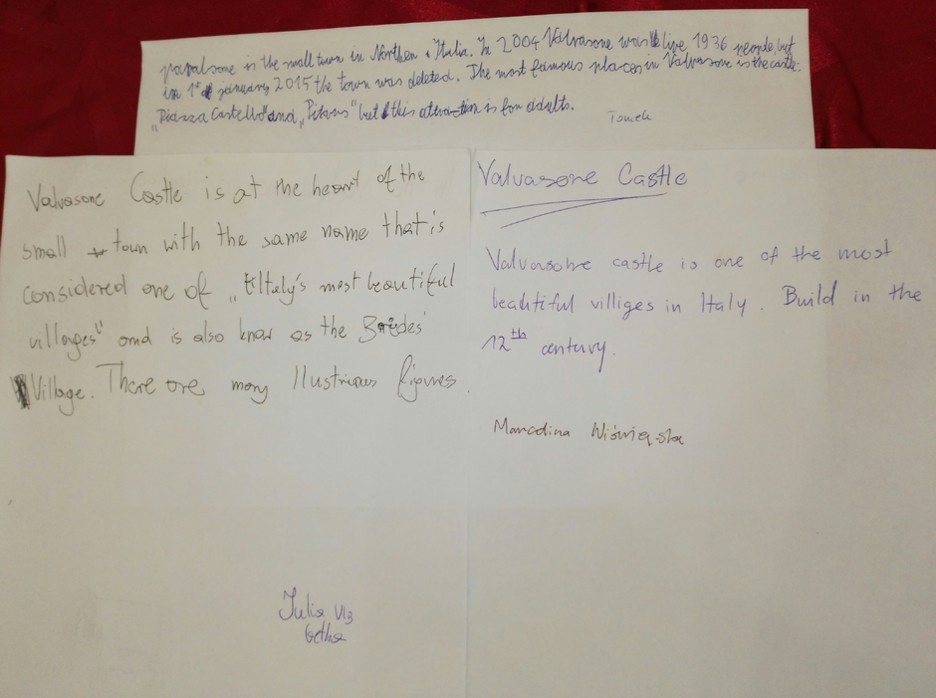 is the small town in Northen Italia. In 2004 Valvasone was live 1936 people, but
in 1st january 2015 the town was deleted. The most famous places in Valvasone is the castle:
"Piazza Castello" and " but this attraction is for adults.
Tomek
Valvasone Castle is at the heart of the
small town with the same name that is
considered one of „Iltaly's most beautiful
villages" and is also know as the Brides'
Village. There are many Ilustrious figures.
Julia VIb
Valvasone Castle
Valvasone castle is one of the most
beautiful villiges in Italy. Build in the
12th century.